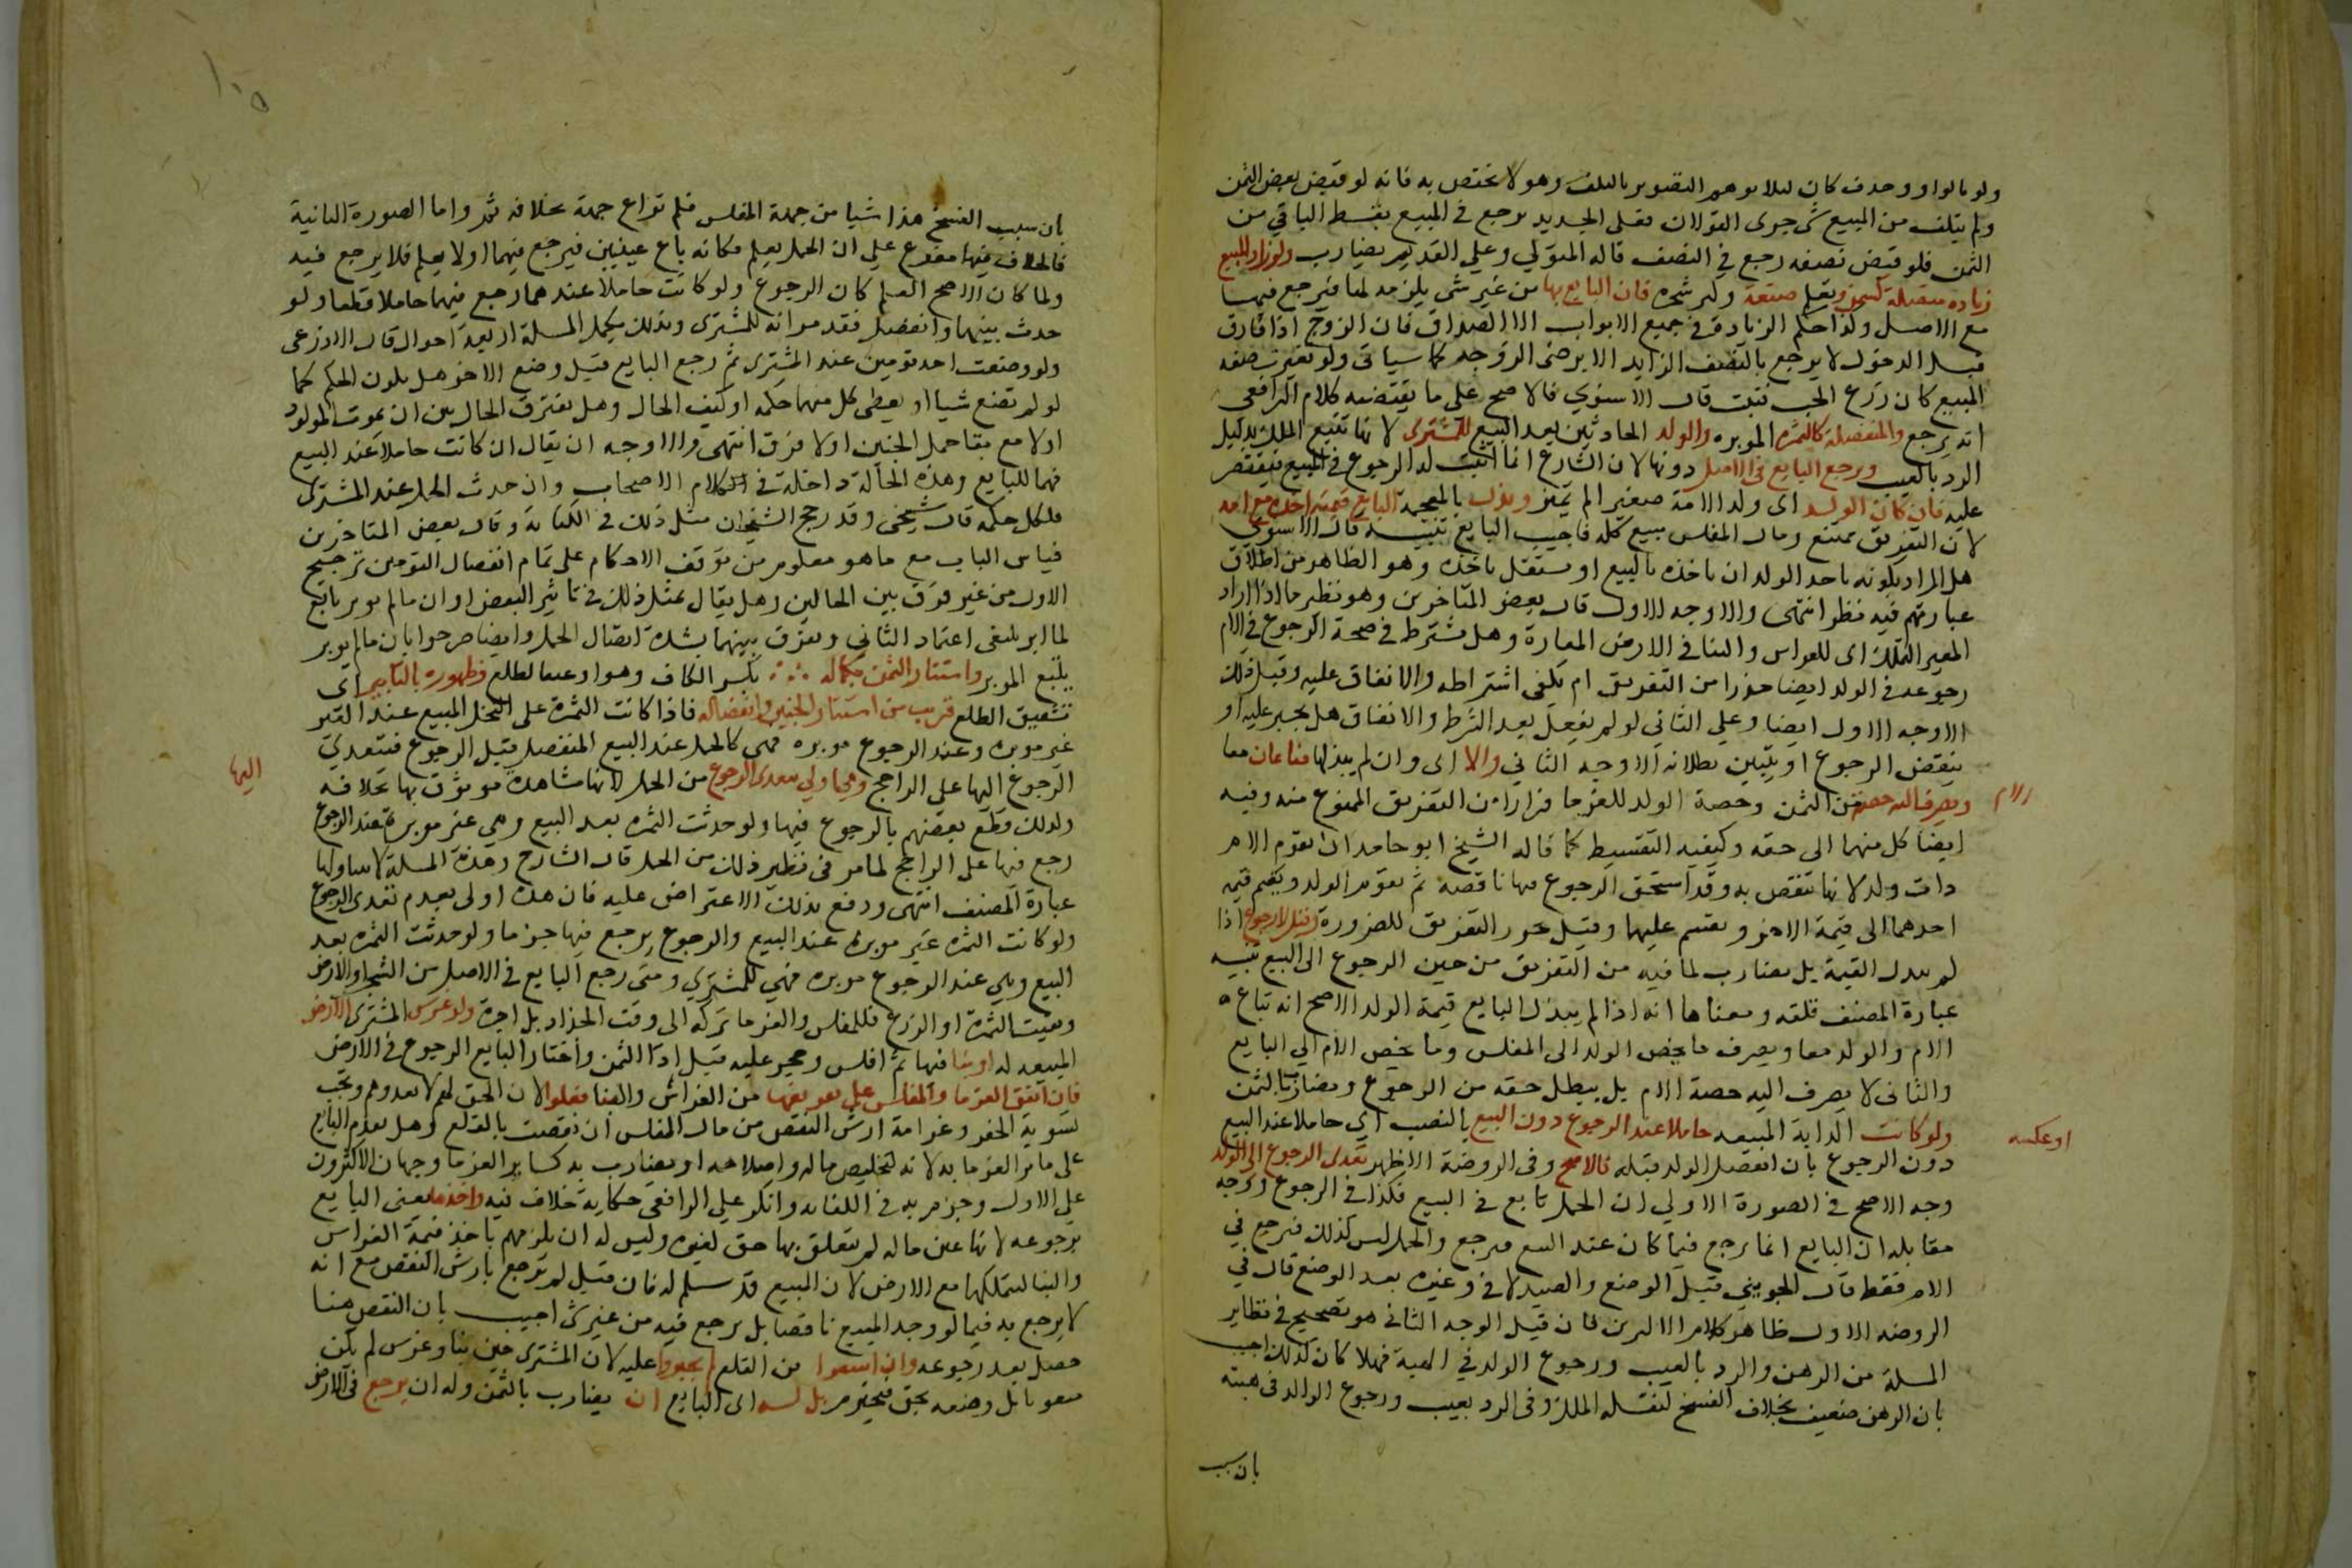 ولو بالواو وحذف كان ليلا يوهم التصوير بالتلف وهو لا يختص به فانه لو قبض بعض الثمن
ولم يتلف من المبيع شي جرى القولان فعلى الجديد يرجع في المبيع بقسط الباقي من
الثمن فلو قبض نصفه رجع في النصف قاله المتولي وعلي القديم يضارب ولو زاد المبيع
زيادة متصلة كسمن وتعلم صنعة وكبر شجرة فان البايع بها من غير شي يلزمه لها فيرجع فيها
مع الاصل وكذا حكم الزيادة في جميع الابواب الا الصداق فان الزوج اذا فارق
قبل الدخول لا يرجع بالنصف الزايد الا برضى الزوجه كما سياتى ولو تغيرت صفه
المبيع كان زرع الحب فنبت قال الاسنوي فالاصح على ما يقتضيه كلام الرافعي
انه يرجع والمنفصلة كالثمرة الموبره والولد الحادثين بعد البيع للمشترى لانها تتبع الملك بدليل
الرد بالعيب ويرجع البايع في الاصل دونها لان الشارع انما اثبت له الرجوع في المبيع فيقتصر
عليه فان كان الولد اى ولد الامة صغير الم يميز وبذل بالمعجمة البايع قيمته اخذه مع امه
لان التفريق ممتنع ومال المفلس مبيع كله فاجيب البايع تنبيه قال الاسنوي
هل المراد بكونه ياخذ الولد ان ياخذه بالبيع او يستقل باخذه وهو الظاهر من اطلاق
عبارتهم فيه نظر انتهى والاوجه الاول قال بعض المتاخرين وهو نظير ما اذا اراد
المعير التملك اى للغراس والبنا في الارض المعارة وهل يشترط في صحة الرجوع في الام
رجوعه في الولد ايضا حذرا من التفريق ام يكفى اشتراطه والاتفاق عليه وقبل ذلك
الاوجه الاول ايضا وعلي الثاني لو لم يفعل بعد الشرط والاتفاق هل يجبر عليه او
ينقض الرجوع او يتبين بطلانه الاوجه الثاني والا اى وان لم يبذلها فتباعان معا
ويصرف اليه حصة من الثمن وحصة الولد للغرما فرارا من التفريق الممنوع منه وفيه
الام
ايضا كل منهما الى حقه وكيفيه التقسيط كما قاله الشيخ ابو حامد ان تقوم الام
ذات ولد لانها تنقص به وقد استحق الرجوع فيها ناقصة ثم يقوم الولد ويضم قيمه
احدهما الى قيمة الاخر ويقسم عليها وقيل يجوز التفريق للضرورة وقيل لا رجوع اذا
لم يبذل القيمة بل يضارب لما فيه من التفريق من حين الرجوع الى البيع تنبيه
عبارة المصنف قلقه ومعناها انه اذا لم يبذل البايع قيمة الولد الاصح انه تباع
الام والولد معا ويصرف ما يخص الولد الى المفلس وما يخص الام الي البايع
والثانى لا يصرف اليه حصة الام بل يبطل حقه من الرجوع ويضارب بالثمن
ولو كانت الدابة المبيعه حاملا عند الرجوع دون البيع بالنصب اي حاملا عند البيع
او عكسه
دون الرجوع بان انفصل الولد قبله فالاصح وفى الروضة الاظهر تعدى الرجوع الى الولد
وجه الاصح في الصورة الاولي ان الحمل تابع في البيع فكذا في الرجوع ووجه
مقابله ان البايع انما يرجع فيما كان عند البيع فيرجع والحمل ليس كذلك فيرجع في
الام فقط قال الجويني قبل الوضع والصيدلاني وغيره بعد الوضع قال في
الروضه الاول ظاهر كلام الاكثرين فان قيل الوجه الثاني هو تصحيح في نظاير
المسلة من الرهن والرد بالعيب ورجوع الولد في الهبة فهلا كان كذلك اجيب
بان الرهن ضعيف بخلاف الفسخ لنقله الملك وفى الرد بعيب ورجوع الوالد في هبته
بان سبب
١٠٥
بان سبب الفسخ هذا شيا من جهة المفلس فلم تراع جهة بخلافه ثمر واما الصورة الثانية
فالخلاف فيها مفرع علي ان الحمل يعلم فكانه باع عينين فيرجع فيهما اولا يعلم فلا يرجع فيه
ولما كان الاصح العلم كان الرجوع ولو كانت حاملا عندهما رجع فيهما حاملا قطعا ولو
حدث بينهما وانفصل فقد مر انه للمشترى وبذلك يكمل للمسلة اربعة احوال قال الاذرعى
ولو وضعت احد توءمين عند المشترى ثم رجع البايع قبل وضع الاخر هل يكون الحكم كما
لو لم تضع شيا او يعطى كل منهما حكمه او كيف الحال وهل يفترق الحال بين ان يموت المولود
اولا مع بقا حمل الجنين اولا فرق انتهى والاوجه ان يقال ان كانت حاملا عند البيع
فهما للبايع وهذه الحالة داخلة في كلام الاصحاب وان حدث الحمل عند المشترى
فلكل حكمه قال شيخى وقد رجح الشيخان مثل ذلك في الكتابة وقال بعض المتاخرين
قياس الباب مع ما هو معلوم من توقف الاحكام على تمام انفصال التومين ترجيح
الاول من غير فرق بين الحالين وهل يقال بمثل ذلك في تاثير البعض او ان ما لم يوبر تابع
لما ابر ينبغى اعتماد الثاني ويفرق بينهما بشدة اتصال الحمل وايضا صرحوا بان ما لم يوبر
يتبع الموبر واستتار الثمر بكمامه بكسر الكاف وهو اوعية الطلع وظهوره بالتابير اى
تشقيق الطلع قريب من استتار الجنين وانفصاله فاذا كانت الثمرة على النخل المبيع عند
غير موبره وعند الرجوع موبره فهى كالحمل عند البيع المنفصل قبل الرجوع فيتعدي
الرجوع اليها على الراجح وهي اولي بتعدى الرجوع من الحمل لانها مشاهدة موثوق بها بخلافه
اليها
ولذلك قطع بعضهم بالرجوع فيها ولو حدثت الثمره بعد البيع وهي غير موبرة عند الرجوع
رجع فيها على الراجح لما مر فى نظير ذلك من الحمل قال الشارح وهذه المسلة لا يتناولها
عبارة المصنف انتهى ودفع بذلك الاعتراض عليه فان هذه اولى بعدم تعدى الرجوع
ولو كانت الثمره غير موبرة عند البيع والرجوع يرجع فيها جزما ولو حدثت الثمره بعد
البيع وهي عند الرجوع موبره فهي للمشتري ومتى رجع البايع في الاصل من الشجر او الارض
وبقيت الثمرة او الزرع فللمفلس والغرما تركه الى وقت الجذاذ بلا اجرة ولو غرس المشترى الارض
المبيعه له او بنا فيها ثم افلس وحجر عليه قبل ادا الثمن واختار البايع الرجوع في الارض
فان اتفق الغرما والمفلس على تفريغها من الغراس والبنا فعلوا لان الحق لهم لا يعدوهم وتجب
تسوية الحفر وغرامة ارش النقص من مال المفلس ان نقصت بالقلع وهل يقدم البايع
على ساير الغرما به لانه لتخليص ماله واصلاحه او يضارب به كساير الغرما وجهان الاكثرون
علي الاول وجزم به في الكفاية وانكر علي الرافعى حكاية خلاف فيه واخذها يعنى البايع
برجوعه لانها عين ماله لم يتعلق بها حق لغيره وليس له ان يلزمهم ياخذ قيمة الغراس
والبنا ليتملكها مع الارض لان المبيع قد سلم له فان قيل لم يرجع بارش النقص مع انه
لا يرجع به فيما لو وجد المبيع ناقصا بل يرجع فيه من غير شي اجيب بان النقص هنا
حصل بعد رجوعه وان امتنعوا من القلع لم يجبروا عليه لان المشترى حين بنا وغرس لم يكن
متعديا بل وضعه بحق فيحترم بل له اى البايع ان يضارب بالثمن وله ان يرجع في الارض